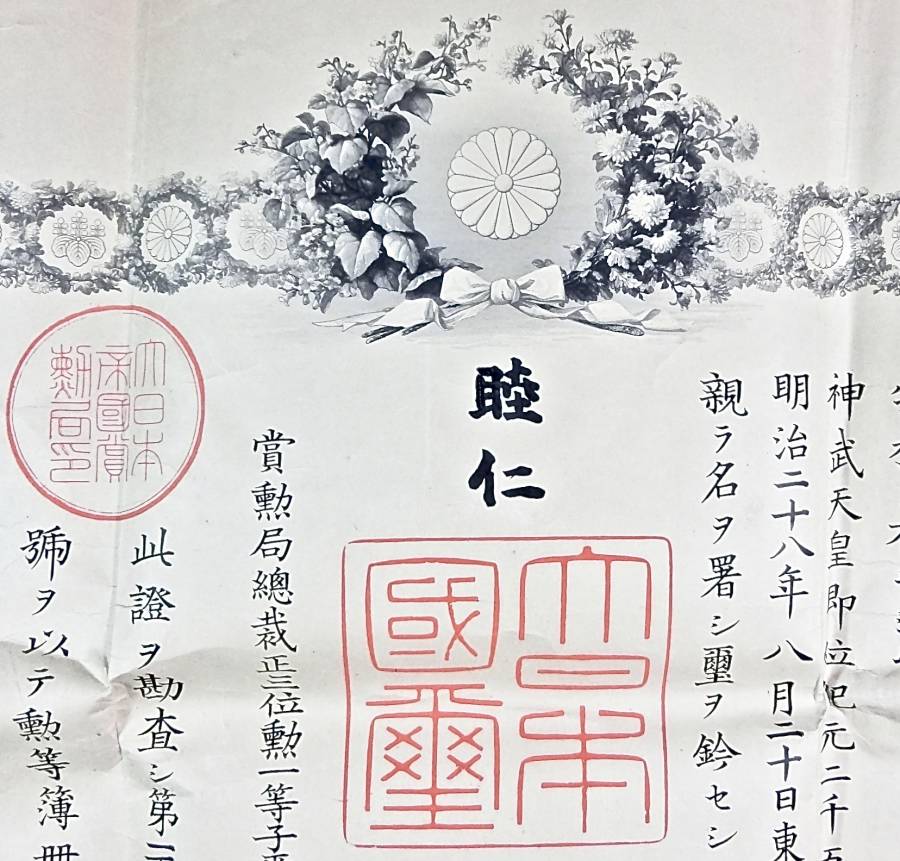 神武天皇即位紀元二千五
明治二十八年八月二十日東
親ラ名ヲ署シ璽ヲ鈐セシ
睦仁
大日本
國璽
賞勲局總裁正三位勲一等子
此證ヲ勘査シ第二
號ヲ以テ勲等簿冊
大日本
帝國賞
勲局印